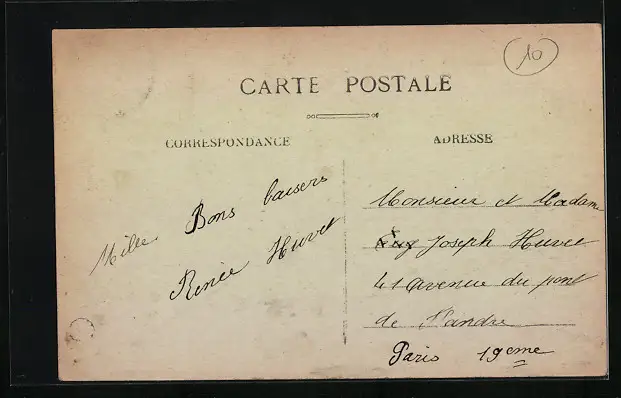 10
CARTE POSTALE
CORRESPONDANCE
ADRESSE
Mille Bons baisers
Renée Huvet
Monsieur et Madame
Joseph Huvet
41 avenue du pont
de Flandre
Paris 19eme